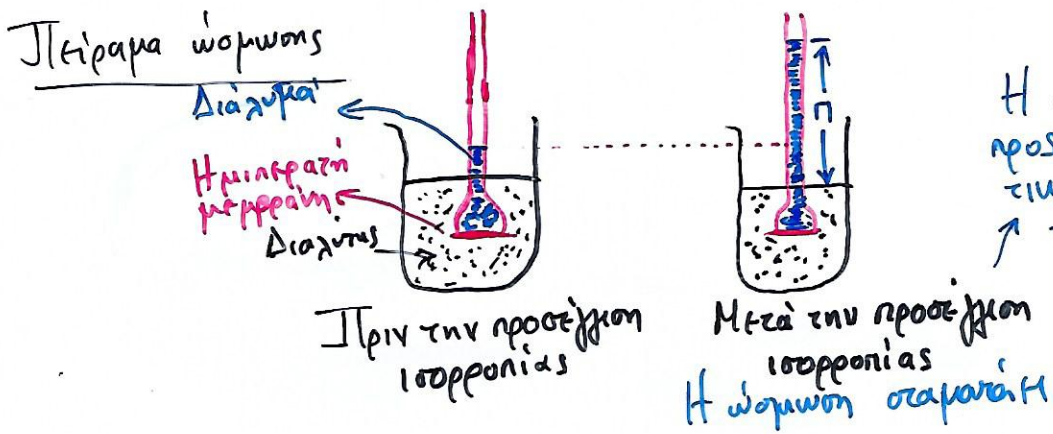 Πείραμα ώσμωσης
Διάλυμα
Ημιπερατή
μεμβράνη
Διαλύτης
Π
Η
προς
τικ
Πριν την προσέγγιση
ισορροπίας
Μετά την προσέγγιση
ισορροπίας
Η ώσμωση σταματάει